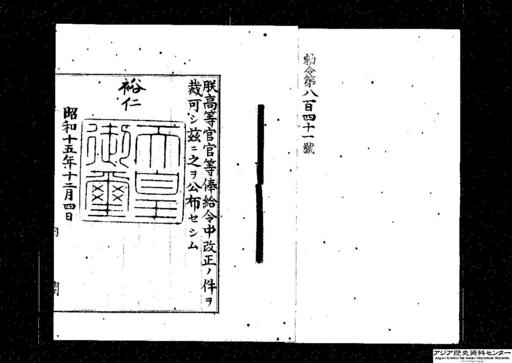 勅令第八百四十一號
朕高等官官等俸給令中改正ノ件ヲ
裁可シ茲ニ之ヲ公布セシム
裕仁
天皇
御璽
昭和十五年十二月四日
内
閣
アジア歴史資料センター
Japan Center for Asian Historical Records